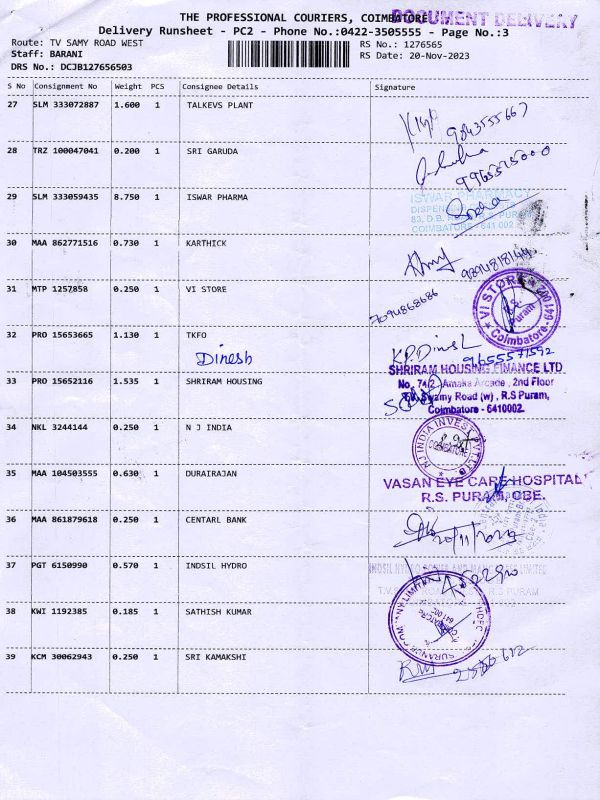 THE PROFESSIONAL COURIERS, COIMBATORE
DOCUMENT DELIVERY
Delivery Runsheet - PC2 - Phone No.:0422-3505555 - Page No.:3
Route: TV SAMY ROAD WEST
RS No.: 1276565
Staff: BARANI
RS Date: 20-Nov-2023
DRS No.: DCJB127656503
S No Consignment No Weight PCS Consignee Details Signature
27 SLM 333072887 1.600 1 TALKEVS PLANT
9843555667
28 TRZ 100047041 0.200 1 SRI GARUDA
9965575000
29 SLM 333059435 8.750 1 ISWAR PHARMA
ISWAR PHARMACY
COIMBATORE - 641 002
30 MAA 862771516 0.730 1 KARTHICK
31 MTP 1257858 0.250 1 VI STORE
7094868686
VI STORE
R.S. Puram
Coimbatore - 641 002
32 PRO 15653665 1.130 1 TKFO
Dinesh
9655571592
33 PRO 15652116 1.535 1 SHRIRAM HOUSING
SHRIRAM HOUSING FINANCE LTD
No. 74/2, Amaka Arcade, 2nd Floor
Swamy Road (w), R.S Puram,
Coimbatore - 6410002.
34 NKL 3244144 0.250 1 N J INDIA
NJ INDIA INVEST
COIMBATORE
35 MAA 104503555 0.630 1 DURAIRAJAN
VASAN EYE CARE HOSPITAL
R.S. PURAM, CBE.
36 MAA 861879618 0.250 1 CENTARL BANK
20/11/2023
37 PGT 6150990 0.570 1 INDSIL HYDRO
INDSIL HYDRO POWER AND MANGANESE LIMITED
38 KWI 1192385 0.185 1 SATHISH KUMAR
39 KCM 30062943 0.250 1 SRI KAMAKSHI